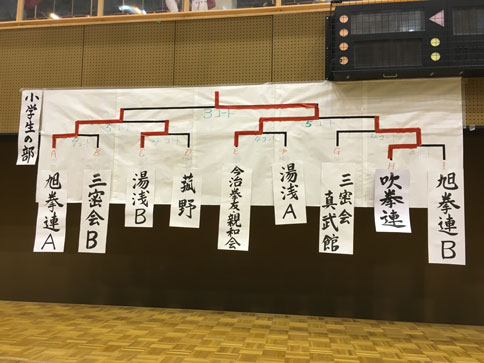 小学生の部
3コート
5コート
A
旭拳連A
三密会B
湯浅B
菰野
今治拳友親和会
湯浅A
三密会
真武館
吹拳連
旭拳連B